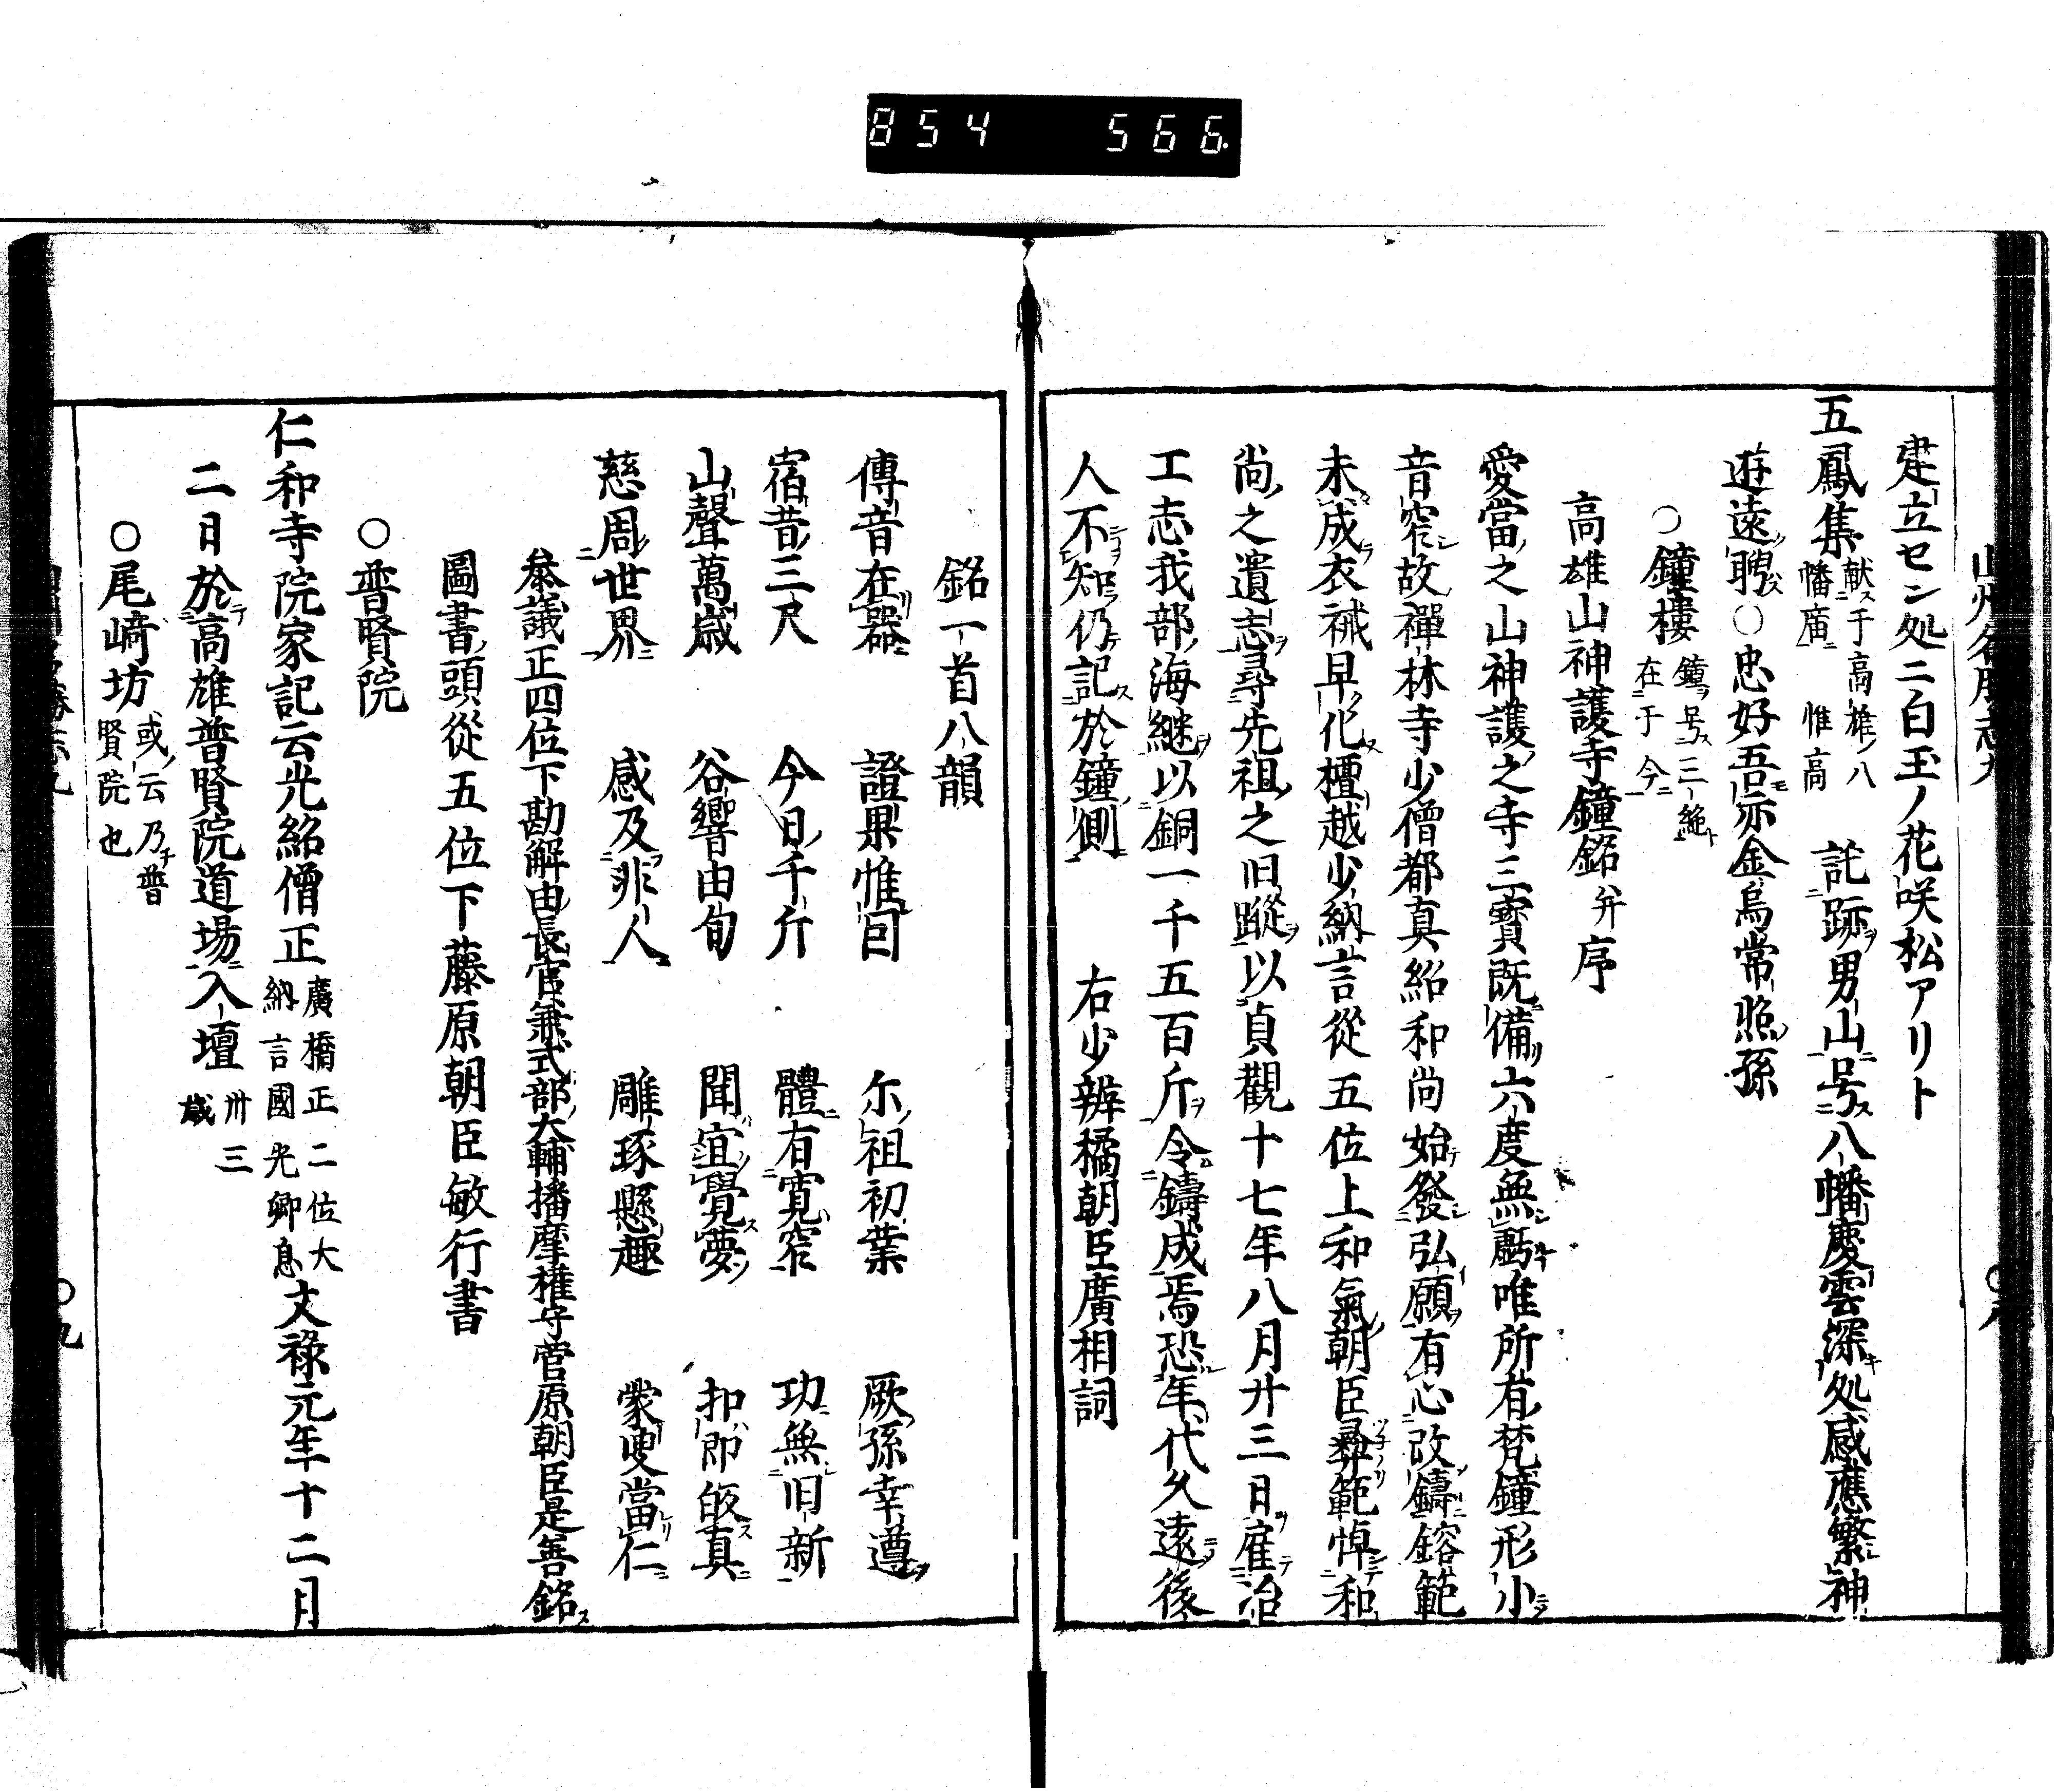 854 566
建立セン処ニ白玉ノ花咲松アリト
五鳳集献于高雄八幡廣 惟高 託跡男山号八幡慶雲深処感應繁神
遊遠聘○忠好吾宗金烏常照孫
○鐘樓鐘号三絶在于今
高雄山神護寺鐘銘并序
愛當之山神護之寺三寳既備六度無虧唯所有梵鐘形小
音窄故禪林寺少僧都真紹和尚始發弘願有心改鑄鎔範
未成衣裓早化檀越少納言從五位上和氣朝臣彝範悼和
尚之遺志尋先祖之旧蹤以貞觀十七年八月廾三日雇冶
工志我部海継以銅一千五百斤令鑄成焉恐年代久遠後
人不知仍記於鐘側 右少辨橘朝臣廣相詞
銘一首八韻
傳音在器 證果惟因 尓祖初葉 厥孫幸遵
宿昔三尺 今日千斤 體有寛窄 功無旧新
山聲萬歳 谷響由旬 聞宜覺夢 扣即皈真
慈周世界 感及非人 雕琢懸趣 蒙叟當仁
叅議正四位下勘解由長官兼式部大輔播摩權守菅原朝臣是善銘
圖書頭從五位下藤原朝臣敏行書
○普賢院
仁和寺院家記云光紹僧正廣橋正二位大納言國光卿息文祿元年十二月
二日於高雄普賢院道場入壇卅三歳
○尾﨑坊或云乃普賢院也